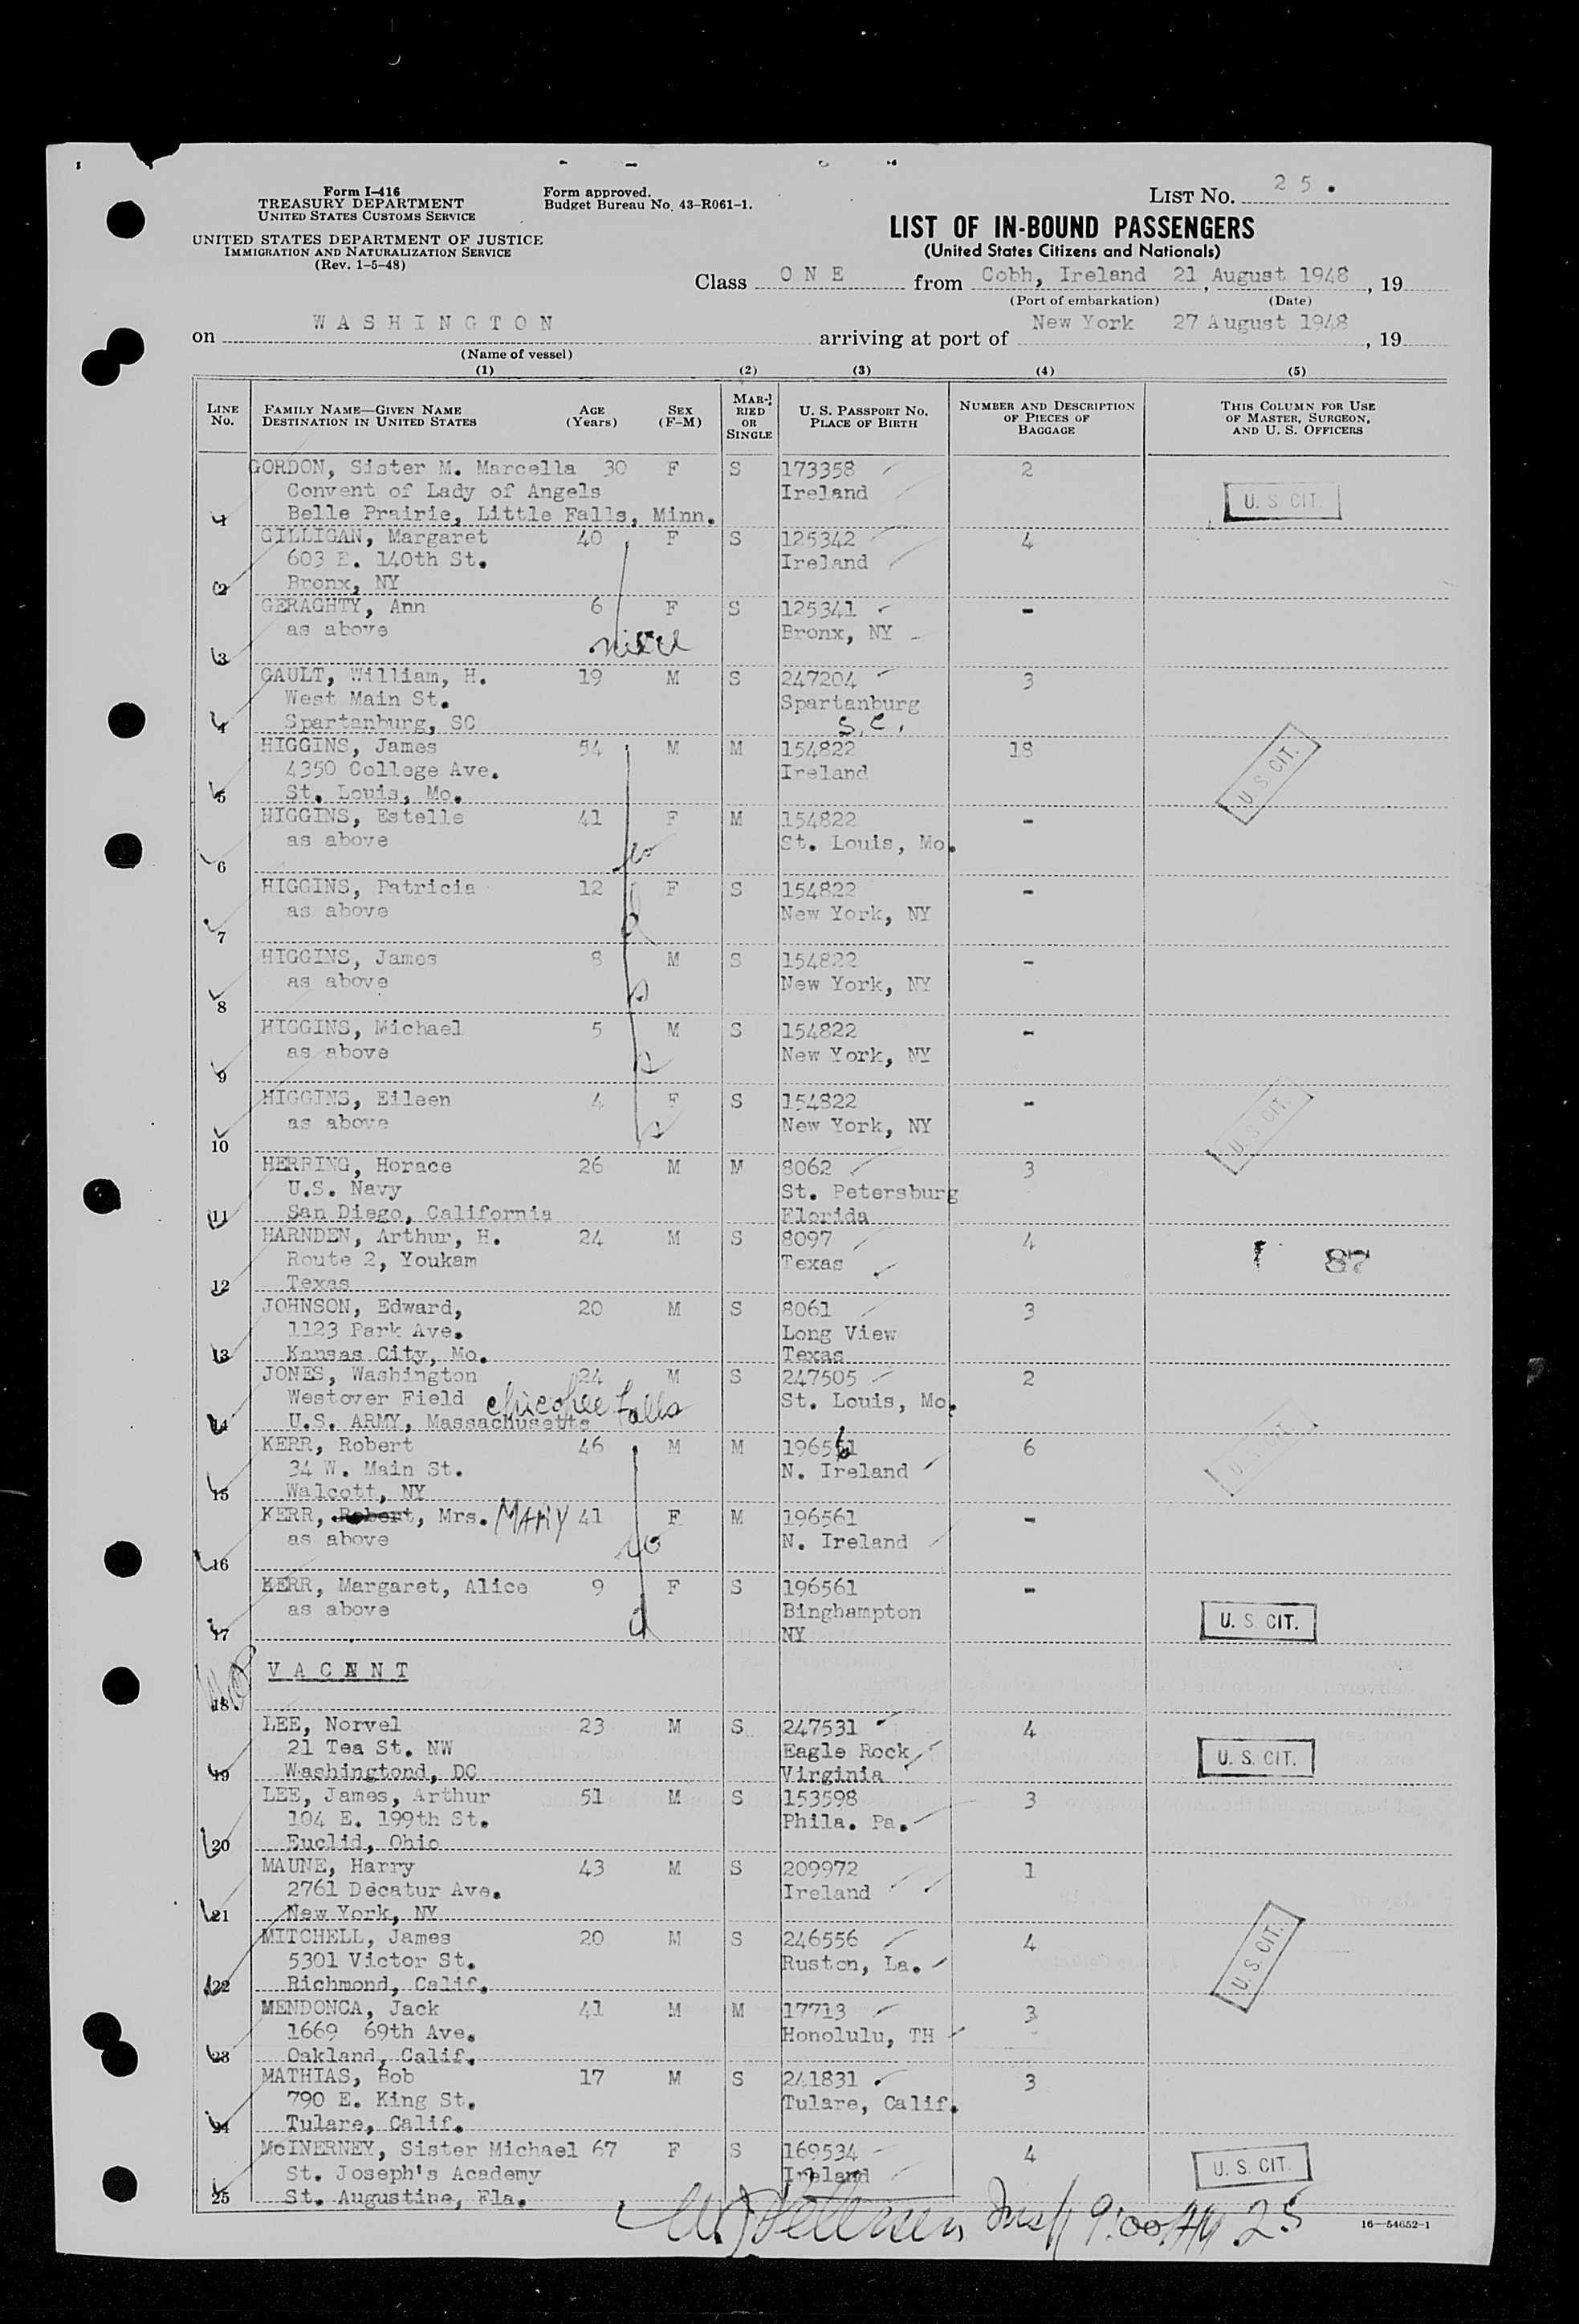 Form I-416
TREASURY DEPARTMENT
UNITED STATES CUSTOMS SERVICE
UNITED STATES DEPARTMENT OF JUSTICE
IMMIGRATION AND NATURALIZATION SERVICE
(Rev. 1-5-48)
Form approved.
Budget Bureau No. 43-R061-1.
LIST NO. 25.
LIST OF IN-BOUND PASSENGERS
(United States Citizens and Nationals)
Class ONE from Cobh, Ireland 21, August 1948, 19
(Port of embarkation) (Date)
on WASHINGTON arriving at port of New York 27 August 1948, 19
(Name of vessel)
(1) (2) (3) (4) (5)
LINE No. FAMILY NAME—GIVEN NAME DESTINATION IN UNITED STATES AGE (Years) SEX (F-M) MARRIED OR SINGLE U. S. PASSPORT NO. PLACE OF BIRTH NUMBER AND DESCRIPTION OF PIECES OF BAGGAGE THIS COLUMN FOR USE OF MASTER, SURGEON, AND U. S. OFFICERS
GORDON, Sister M. Marcella 30 F S 173358 2
Convent of Lady of Angels Ireland U. S. CIT.
1 Belle Prairie, Little Falls, Minn.
GILLIGAN, Margaret 40 F S 125342 4
603 E. 140th St. Ireland
2 Bronx, NY
GERAGHTY, Ann 6 F S 125341 -
as above niece Bronx, NY
3
GAULT, William, H. 19 M S 247204 3
West Main St. Spartanburg
4 Spartanburg, SC S.C.
HIGGINS, James 54 M M 154822 18
4350 College Ave. Ireland U. S. CIT.
5 St. Louis, Mo.
HIGGINS, Estelle 41 F M 154822 -
as above St. Louis, Mo.
6
HIGGINS, Patricia 12 F S 154822 -
as above New York, NY
7
HIGGINS, James 8 M S 154822 -
as above New York, NY
8
HIGGINS, Michael 5 M S 154822 -
as above New York, NY
9
HIGGINS, Eileen 4 F S 154822 -
as above New York, NY U. S. CIT.
10
HERRING, Horace 26 M M 8062 3
U.S. Navy St. Petersburg
11 San Diego, California Florida
HARNDEN, Arthur, H. 24 M S 8097 4
Route 2, Youkam Texas 87
12 Texas
JOHNSON, Edward, 20 M S 8061 3
1123 Park Ave. Long View
13 Kansas City, Mo. Texas
JONES, Washington 24 M S 247505 2
Westover Field Chicopee Falls St. Louis, Mo.
14 U.S. ARMY, Massachusetts U. S. CIT.
KERR, Robert 46 M M 196561 6
34 W. Main St. N. Ireland
15 Walcott, NY
KERR, Robert, Mrs. MARY 41 F M 196561 -
as above N. Ireland
16
KERR, Margaret, Alice 9 F S 196561 -
as above Binghampton U. S. CIT.
17 NY
VACANT
18
LEE, Norvel 23 M S 247531 4
21 Tea St. NW Eagle Rock U. S. CIT.
19 Washingtond, DC Virginia
LEE, James, Arthur 51 M S 153598 3
104 E. 199th St. Phila. Pa.
20 Euclid, Ohio
MAUNE, Harry 43 M S 209972 1
2761 Decatur Ave. Ireland
21 New York, NY
MITCHELL, James 20 M S 246556 4
5301 Victor St. Ruston, La. U. S. CIT.
22 Richmond, Calif.
MENDONCA, Jack 41 M M 17713 3
1669 69th Ave. Honolulu, TH
23 Oakland, Calif.
MATHIAS, Bob 17 M S 241831 3
790 E. King St. Tulare, Calif.
24 Tulare, Calif.
McINERNEY, Sister Michael 67 F S 169534 4
St. Joseph's Academy Ireland U. S. CIT.
25 St. Augustine, Fla.
9:00 AM 25
16—54652-1